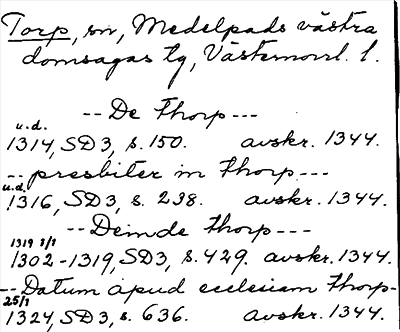 Torp, sn, Medelpads västra
domsagas tg, Västernorrl. l.
--De Thorp---
u.d.
1314, SD3, s. 150. avskr. 1344.
--presbiter in Thorp---
u.d.
1316, SD3, s. 238. avskr. 1344.
--Deinde Thorp---
1319 8/9
1302-1319, SD3, s. 429. avskr. 1344.
--Datum apud ecclesiam Thorp-
25/9
1324, SD3, s. 636. avskr. 1344.